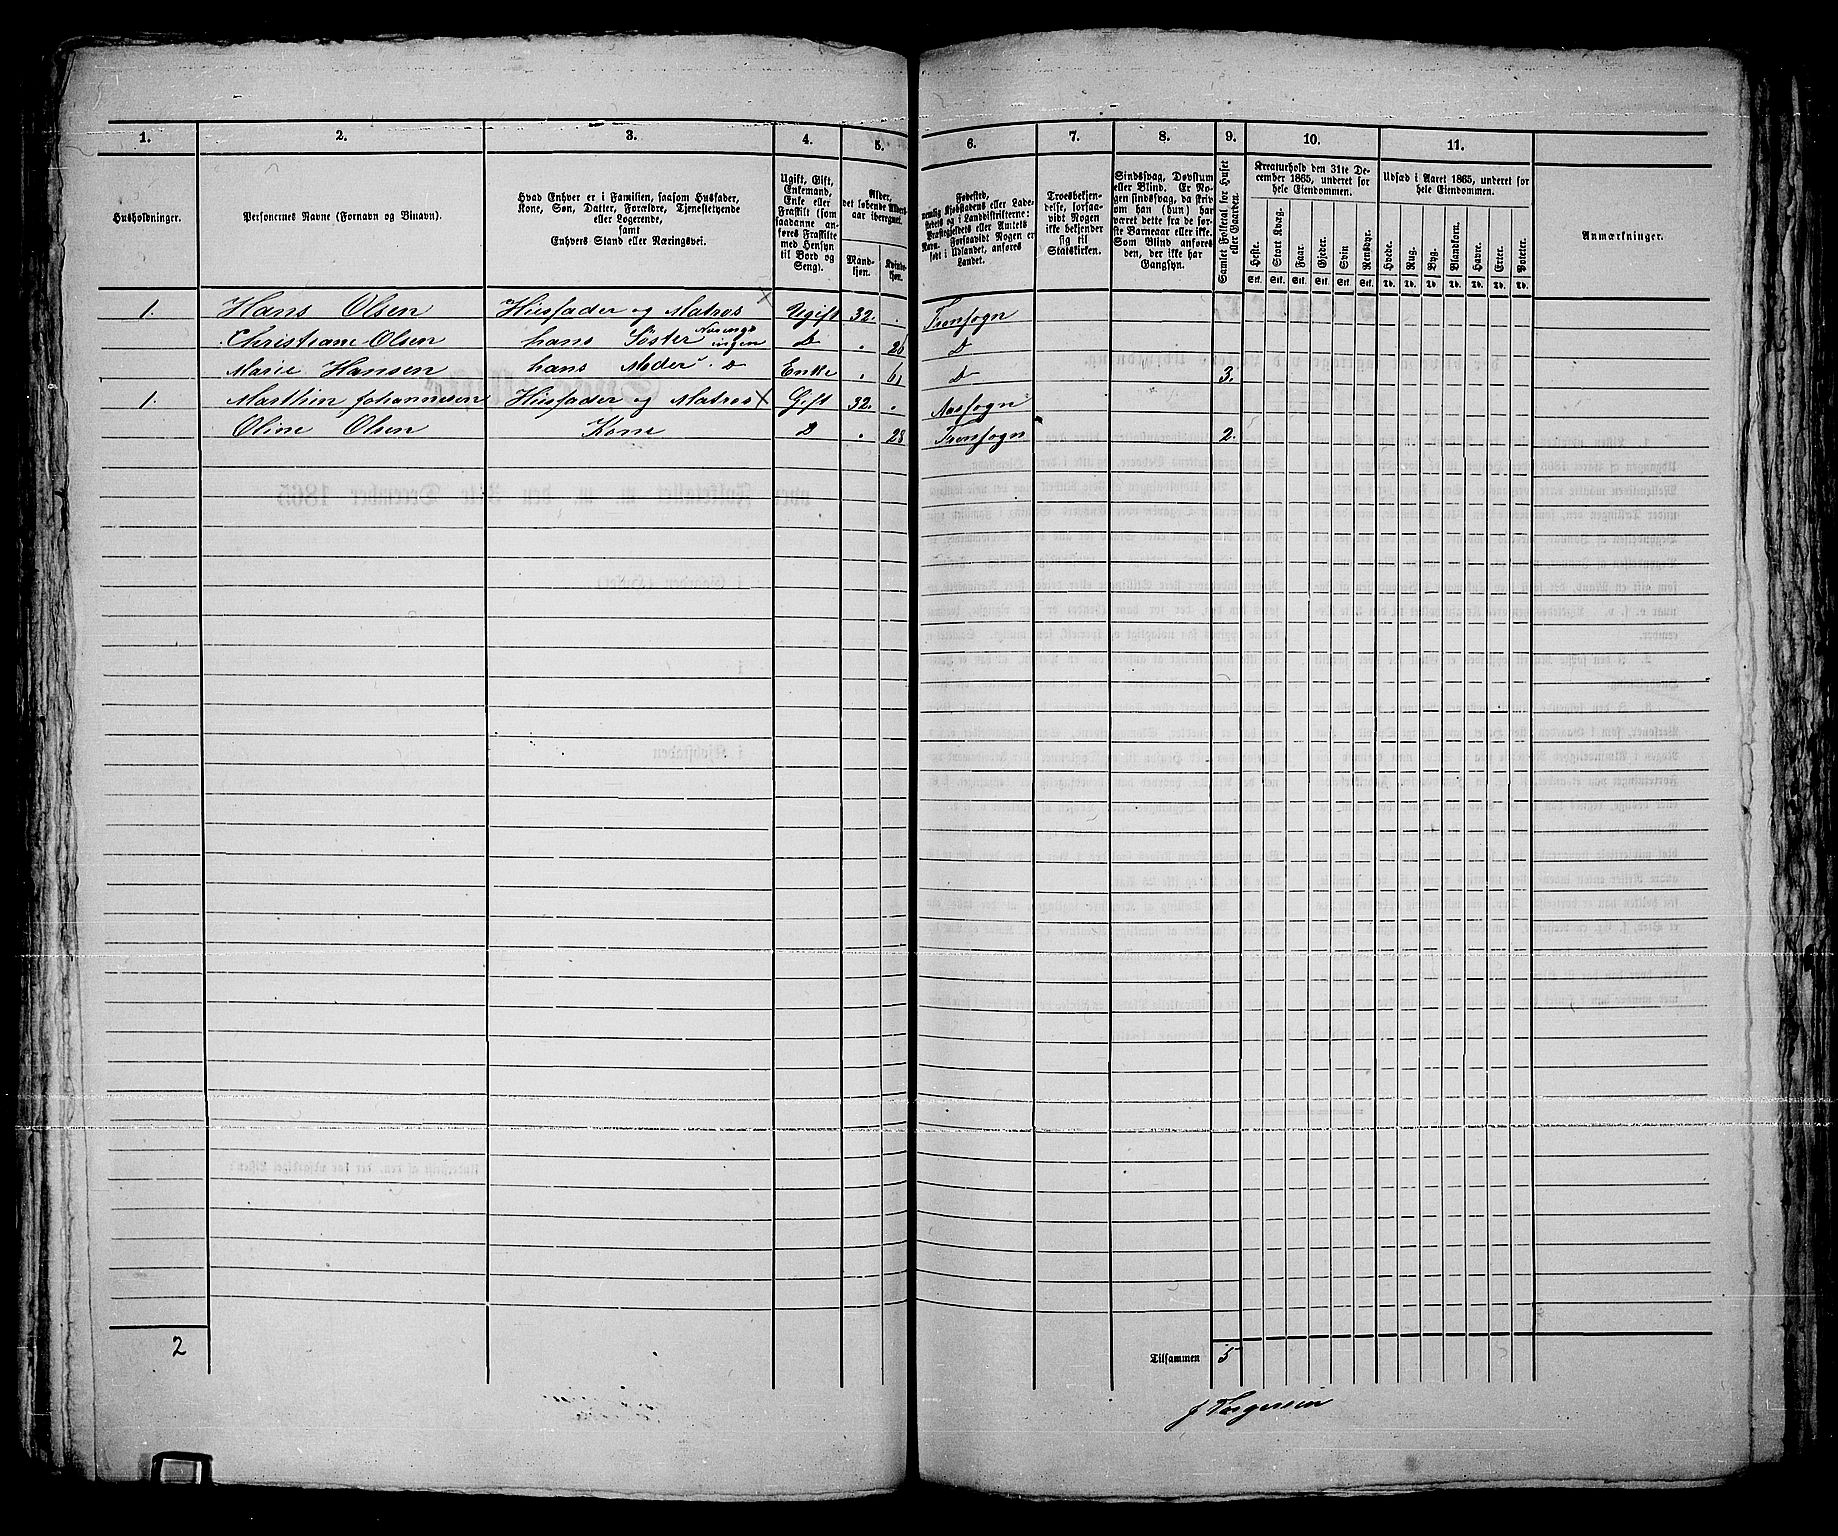 1. 2. 3. 4. 5. 6. 7. 8. 9. 10. 11.
Husholdninger.
Personernes Navne (Fornavn og Binavn).
Hvad Enhver er i Familien, saasom Husfader,
Kone, Søn, Datter, Forældre, Tjenestetyende
eller Logerende,
samt
Enhvers Stand eller Næringsvei.
Ugift, Gift,
Enkemand,
Enke eller
Fraskilt (som
saadanne an-
føres Fraskilte
med Hensyn
til Bord og
Seng).
Alder,
det løbende Alders-
aar iberegnet.
Mand-
kjøn.
Kvinde-
kjøn.
Fødested,
nemlig Kjøbstadens eller Lade-
stedets og i Landdistrikterne:
Præstegjeldets eller Amtets
Navn. Forsaavidt Nogen er
født i Udlandet, anføres
Landet.
Troesbekjen-
delse, forsaa-
vidt Nogen
ikke bekjender
sig til
Statskirken.
Sindssvag, Døvstum
eller Blind. Er No-
gen sindssvag, da skriv
om han (hun) har
været dette fra de før-
ste Barneaar eller ikke.
Som Blind anføres
den, der ikke har
Gangsyn.
Samlet Folketal for Huset
eller Gaarden.
Kreaturhold den 31te De-
cember 1865, underet for
hele Eiendommen.
Heste. Stort Kvæg. Faar. Gjeder. Svin Rensdyr.
Stk. Stk. Stk. Stk. Stk. Stk.
Udsæd i Aaret 1865, underet for
hele Eiendommen.
Hvede. Rug. Byg. Blandkorn. Havre. Erter. Poteter.
Td. Td. Td. Td. Td. Td. Td.
Anmærkninger.
1. Hans Olsen Husfader og Matros × Ugift 32. . Tromsogn
Christiane Olsen hans Søster Nærings ingen D . 26 D
Marie Hansen hans Moder D Enke . 61 D 3.
1. Marthin Johannesen Husfader og Matros × Gift 32. . Aassogn
Oline Olsen Kone D . 28 Tromsogn 2.
2
Tilsammen 5
J Torgersen